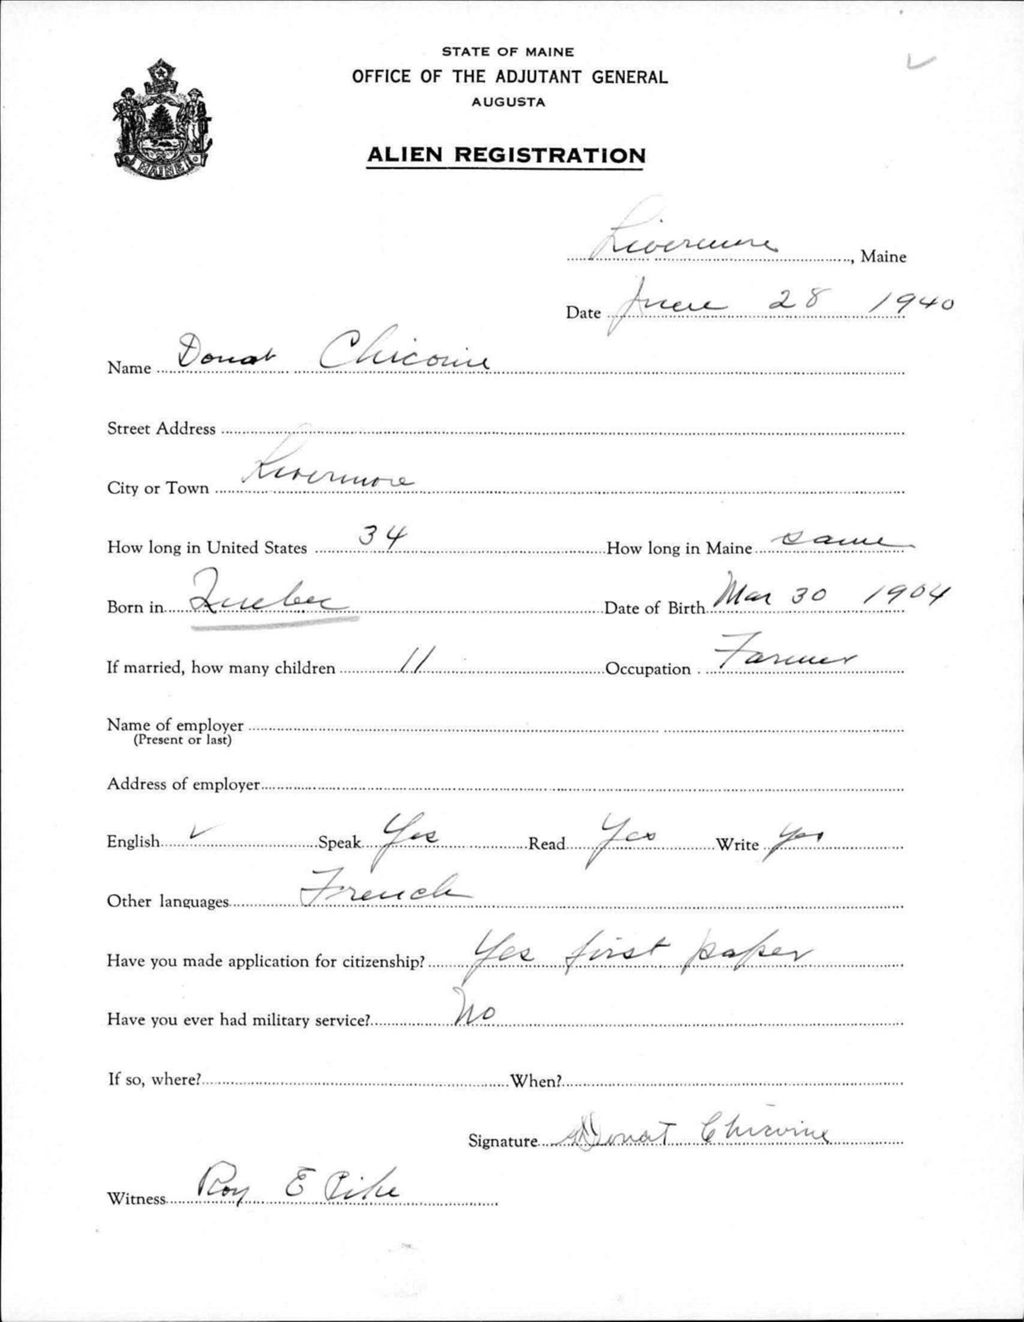 STATE OF MAINE
OFFICE OF THE ADJUTANT GENERAL
AUGUSTA
ALIEN REGISTRATION
MAINE
Livermore, Maine
Date June 28 1940
Name Donat Chicoine
Street Address
City or Town Livermore
How long in United States 34 How long in Maine same
Born in Quebec Date of Birth Mar 30 1904
If married, how many children 11 Occupation Farmer
Name of employer
(Present or last)
Address of employer
English ✓ Speak Yes Read Yes Write Yes
Other languages French
Have you made application for citizenship? Yes first paper
Have you ever had military service? No
If so, where? When?
Signature Donat Chicoine
Witness Roy E Pike